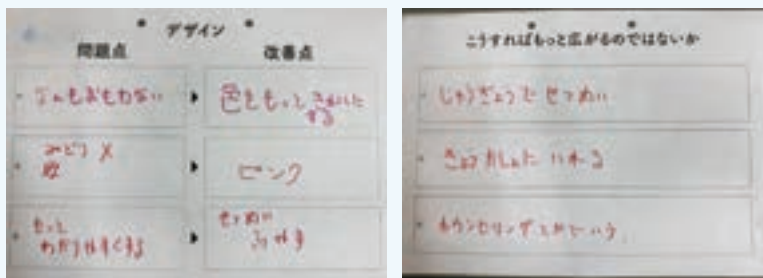 デザイン
問題点
改善点
なんもおもわない
色をもっと
する
みどり ✕
ピンク
もっと
わかりやすくする
せつめい
ふやす
こうすればもっと広がるのではないか
じゅぎょうで せつめい
きょうかしょに いれる
カウンセリングとかでいう